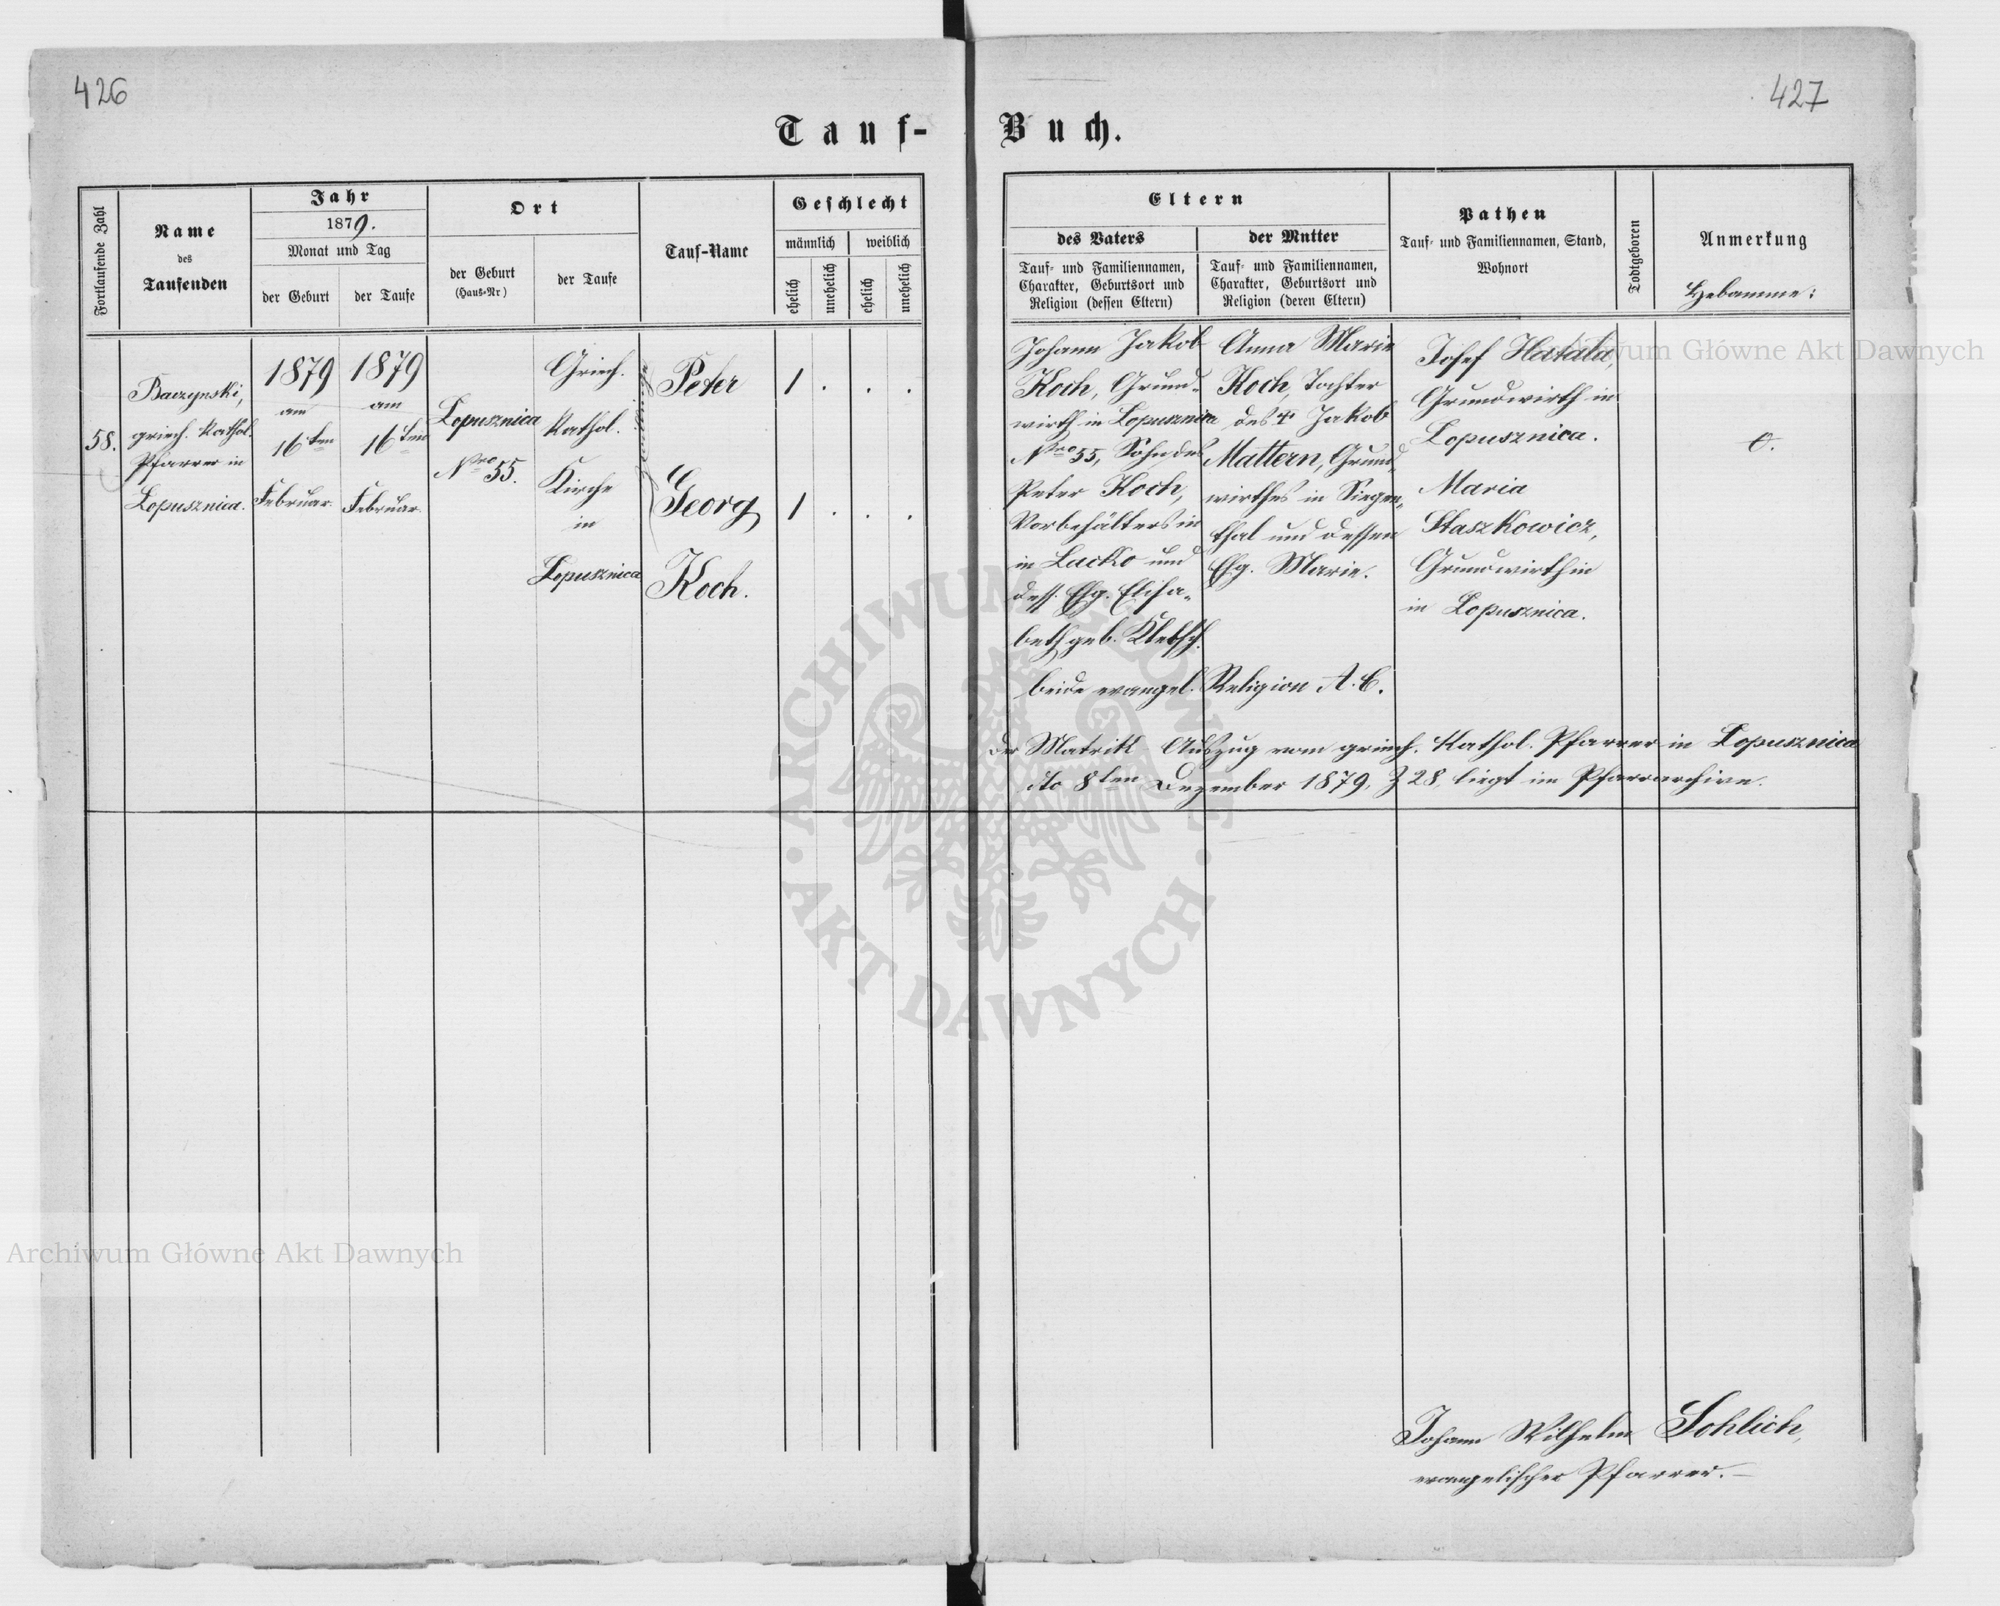 426
427
Tauf-
Buch.
Fortlaufende Zahl
Name
des
Taufenden
Jahr
1879.
Monat und Tag
der Geburt
der Taufe
Ort
der Geburt
(Haus-Nr)
der Taufe
Tauf-Name
Geschlecht
männlich
weiblich
ehelich
unehelich
ehelich
unehelich
Eltern
des Vaters
Tauf- und Familiennamen,
Charakter, Geburtsort und
Religion (dessen Eltern)
der Mutter
Tauf- und Familiennamen,
Charakter, Geburtsort und
Religion (deren Eltern)
Pathen
Tauf- und Familiennamen, Stand,
Wohnort
Todtgeboren
Anmerkung
Hebamme:
58.
Baczynski,
griech. kathol.
Pfarrer in
Lopusznica.
1879
am
16ten
Februar
1879
am
16ten
Februar
Lopusznica
Nro 55.
Griech.
kathol.
Kirche
in
Lopusznica
Zwillinge
Peter
1 . . .
Georg
1 . . .
Koch.
Johann Jakob
Koch, Grund-
wirth in Lopusznica
Nro 55, Sohn des
Peter Koch,
Vorbehälters in
in Lacko und
dess. Ehg. Elisa-
beth geb. Kletsch.
Anna Marie
Koch, Tochter
des † Jakob
Mattern, Grund-
wirthes in Siegen-
thal und dessen
Ehg. Marie.
beide evangel. Religion A. C.
Josef Hatala,
Grundwirth in
Lopusznica.
Maria
Staszkowicz,
Grundwirthin
in Lopusznica.
0.
Der Matrik Auszug vom griech. kathol. Pfarrer in Lopusznica
dto 8ten Dezember 1879, Z 28, liegt im Pfarrarchive.
Johann Wilhelm Sohlich,
evangelischer Pfarrer.
Archiwum Główne Akt Dawnych
Archiwum Główne Akt Dawnych
ARCHIWUM GŁÓWNE · AKT DAWNYCH ·